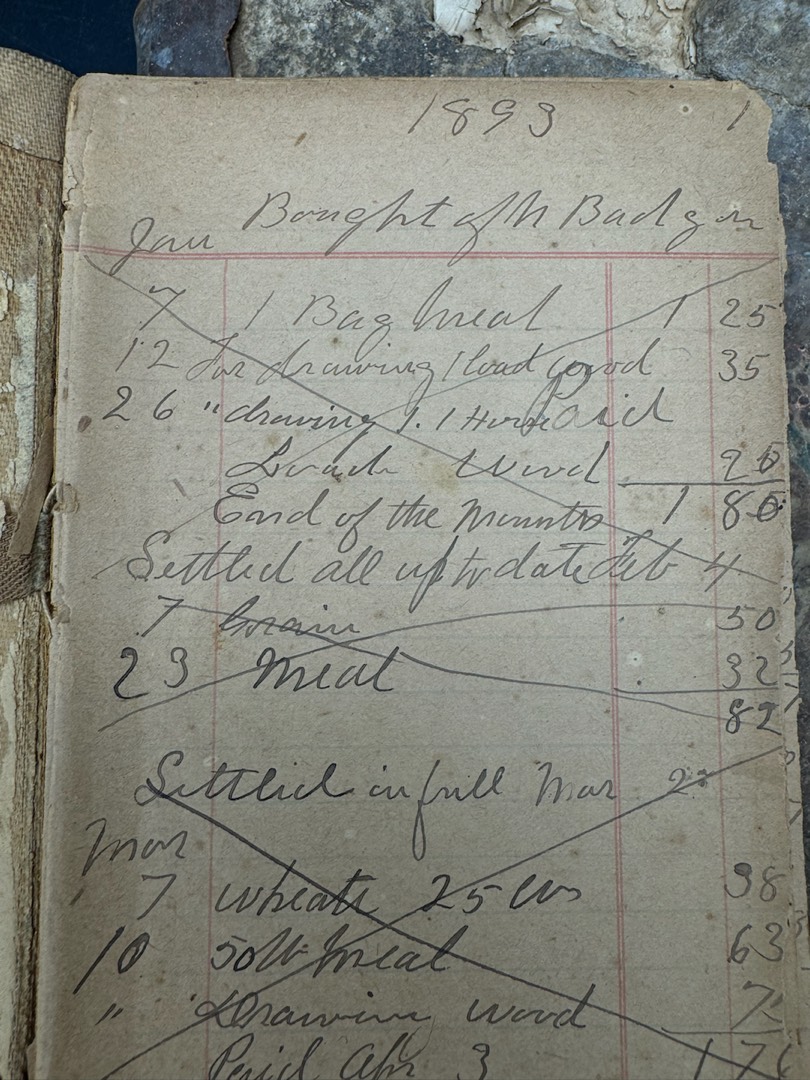 1893 1
Jan Bought of N Badger
7 1 Bag meal 1 25
12 For drawing 1 load wood 35
26 " drawing 1. 1 Horse Paid
Loads Wood 20
End of the Mounth 1 80
Settled all up to date Feb 4
7 Grain 50
23 Meal 32
82
Settled in full Mar 2
Mar
7 wheat 25 lbs 38
10 50 lb meal 63
" Drawing wood 75
Paid Apr 3 1 76